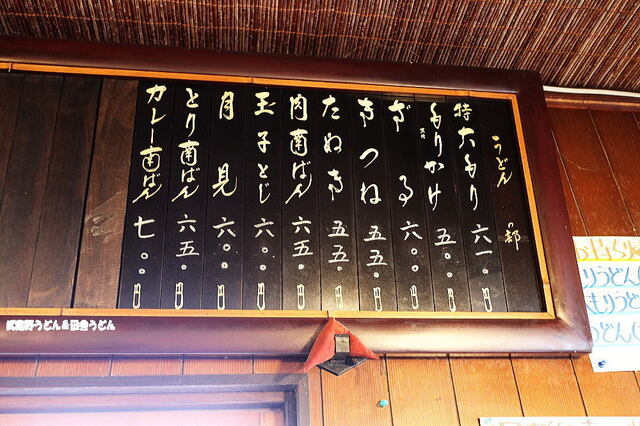 うどんの部
特大もり 六一〇円
もりかけ 五〇〇円
ざる 六〇〇円
きつね 五五〇円
たぬき 五五〇円
肉南ばん 六五〇円
玉子とじ 六〇〇円
月見 六〇〇円
とり南ばん 六五〇円
カレー南ばん 七〇〇円
武蔵野うどん&田舎うどん
りうどん
もりうど
うどん(